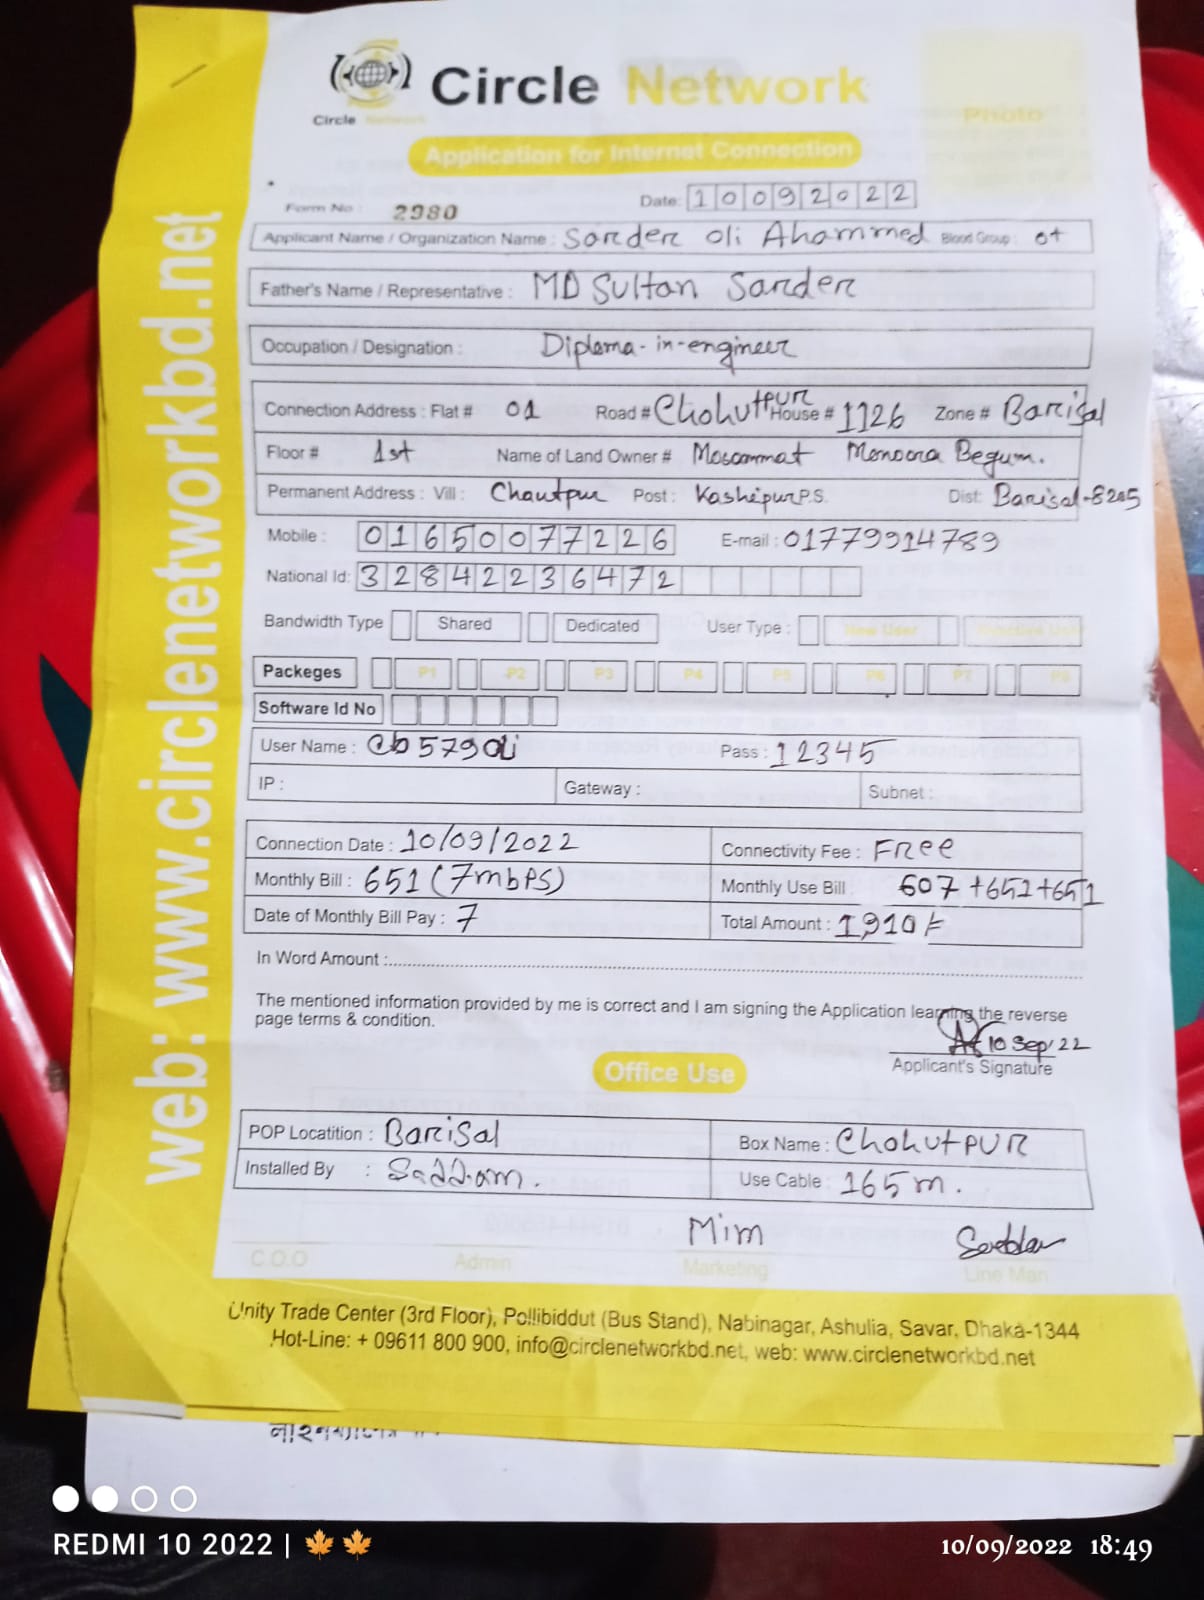 Circle Network
Circle Network
Photo
Application for Internet Connection
Form No : 2980
Date: 10092022
Applicant Name / Organization Name : Sarder Oli Ahammed Blood Group : O+
Father's Name / Representative : MD Sultan Sarder
Occupation / Designation : Diploma-in-engineer
Connection Address : Flat # 01 Road # Chohutpur House # 1126 Zone # Barisal
Floor # 1st Name of Land Owner # Mosammat Monoara Begum.
Permanent Address : Vill : Chautpur Post : Kashipur P.S. Dist: Barisal-8205
Mobile : 01650077226 E-mail : 01779914789
National Id: 32842236472
Bandwidth Type Shared Dedicated User Type : New User
Packeges P1 P2 P3 P4 P5 P6 P7 P8
Software Id No
User Name : Cb579Oli Pass : 12345
IP : Gateway : Subnet :
Connection Date : 10/09/2022 Connectivity Fee : Free
Monthly Bill : 651 (7mbps) Monthly Use Bill 607+651+651
Date of Monthly Bill Pay : 7 Total Amount : 1910
In Word Amount :
The mentioned information provided by me is correct and I am signing the Application learning the reverse
page terms & condition.
10 Sep'22
Applicant's Signature
Office Use
POP Locatition : Barisal Box Name : Chohutpur
Installed By : Saddam. Use Cable : 165m.
Mim
C.O.O Admin Marketing Line Man
Unity Trade Center (3rd Floor), Pollibiddut (Bus Stand), Nabinagar, Ashulia, Savar, Dhaka-1344
Hot-Line: + 09611 800 900, info@circlenetworkbd.net, web: www.circlenetworkbd.net
web: www.circlenetworkbd.net
REDMI 10 2022 |
10/09/2022 18:49